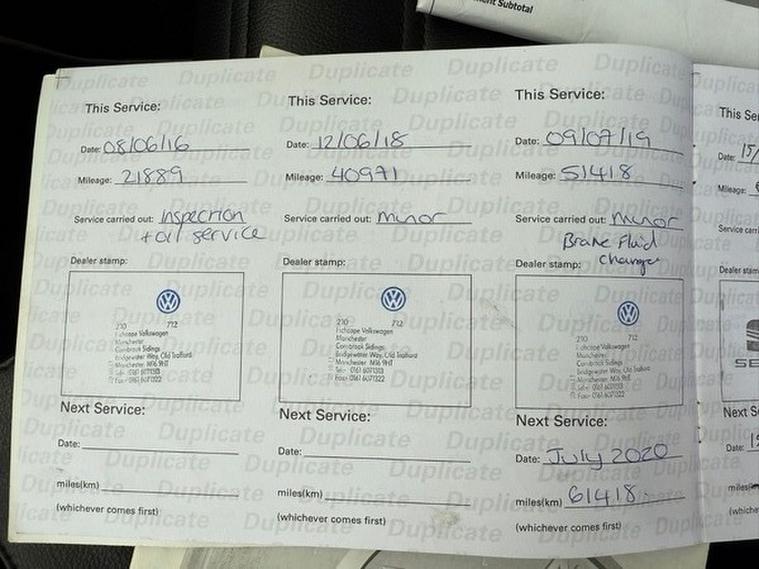 ment Subtotal
Duplicate
This Service:
Date: 08/06/16
Mileage: 21889
Service carried out: Inspection
+ oil service
Dealer stamp:
210 712
Inchcape Volkswagen
Manchester
Cornbrook Sidings
Bridgewater Way, Old Trafford
Manchester M16 9HT
Tel: 0161 6071313
Fax: 0161 6071322
Next Service:
Date:
miles(km)
(whichever comes first)
This Service:
Date: 12/06/18
Mileage: 40971
Service carried out: Minor
Dealer stamp:
210 712
Inchcape Volkswagen
Manchester
Cornbrook Sidings
Bridgewater Way, Old Trafford
Manchester M16 9HT
Tel: 0161 6071313
Fax: 0161 6071322
Next Service:
Date:
miles(km)
(whichever comes first)
This Service:
Date: 09/07/19
Mileage: 51418
Service carried out: Minor
Brake Fluid
change
Dealer stamp:
210 712
Inchcape Volkswagen
Manchester
Cornbrook Sidings
Bridgewater Way, Old Trafford
Manchester M16 9HT
Tel: 0161 6071313
Fax: 0161 6071322
Next Service:
Date: July 2020
miles(km) 61418
(whichever comes first)
This Se
Date: 15/
Mileage:
Service carri
Dealer stam
SE
Next S
Date:
miles(k
(whichev